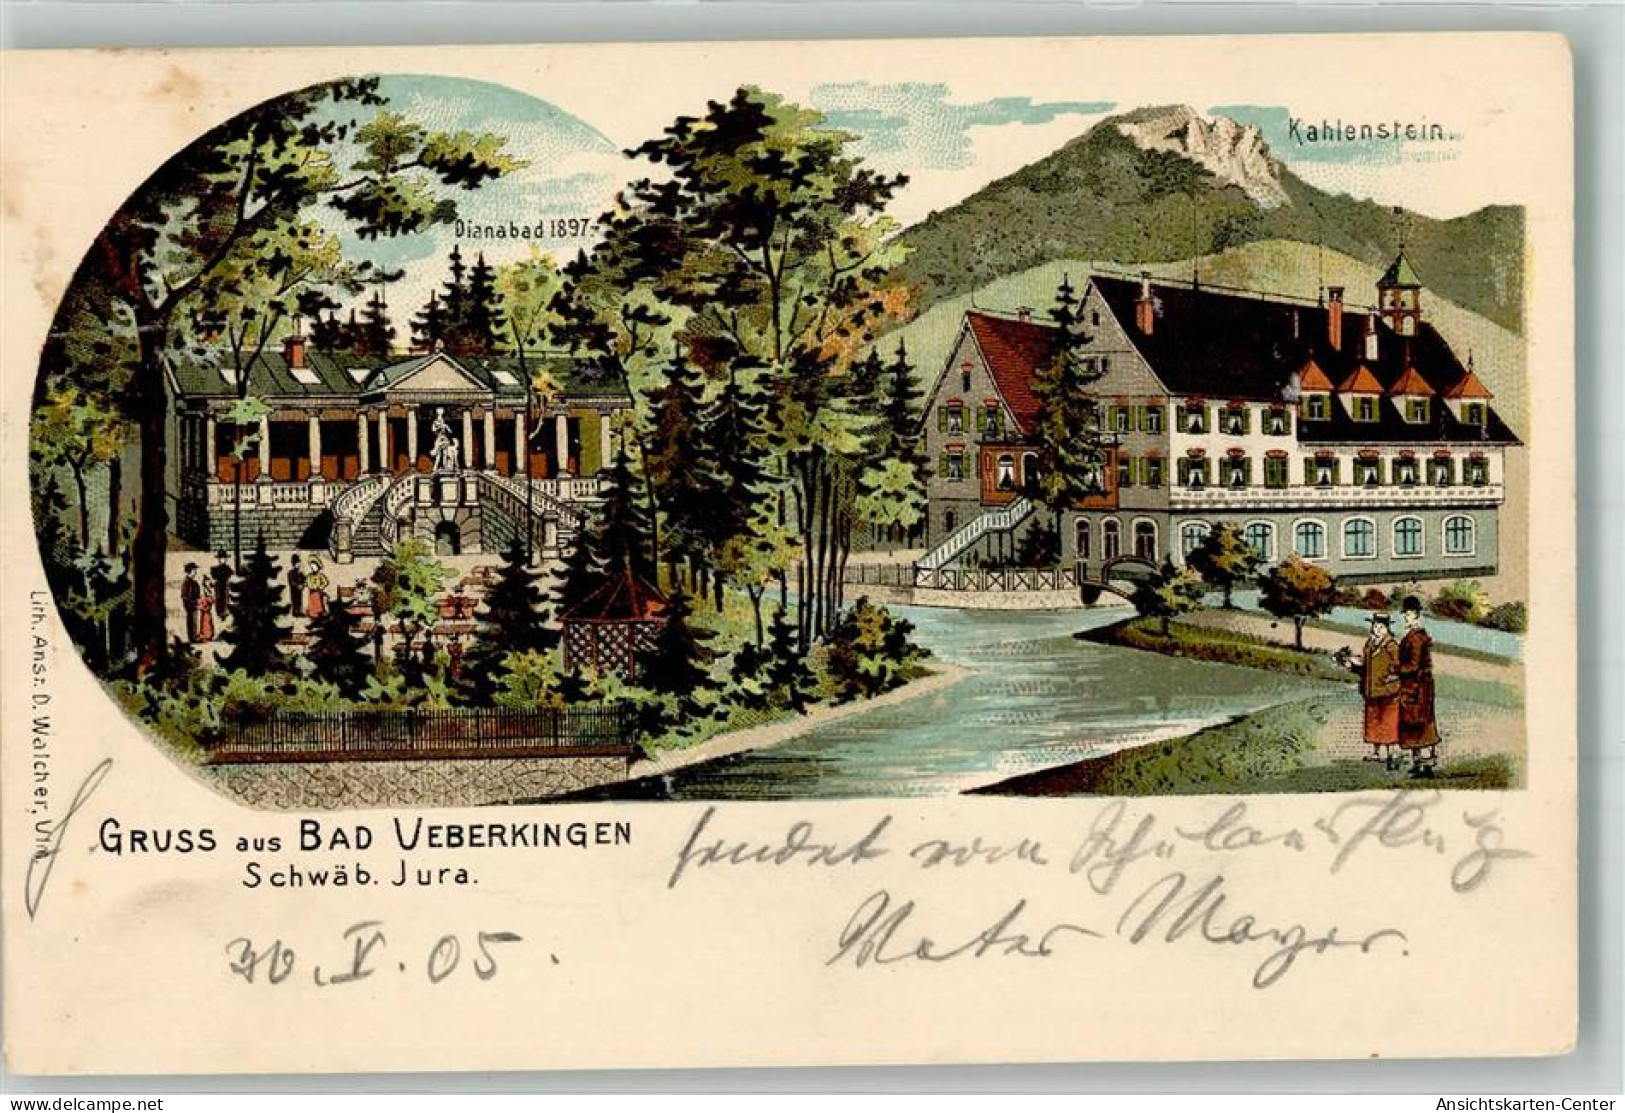 Kahlenstein.
Dianabad 1897.
Lith. Anst. D. Walcher, Ulm.
GRUSS aus BAD UEBERKINGEN
Schwäb. Jura.
sendet vom Schulausflug
Mayer.
30.V.05.
delcampe.net
Ansichtskarten-Center